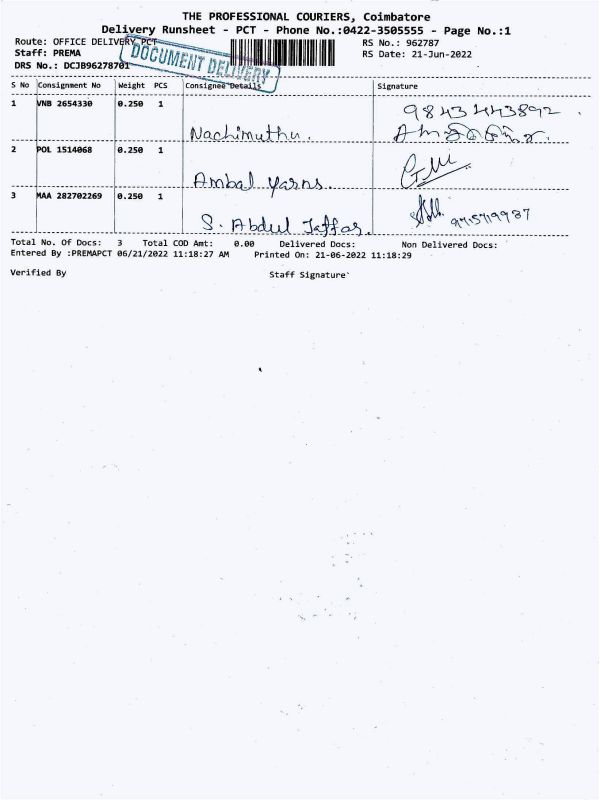 THE PROFESSIONAL COURIERS, Coimbatore
Delivery Runsheet - PCT - Phone No.:0422-3505555 - Page No.:1
Route: OFFICE DELIVERY PCT
RS No.: 962787
Staff: PREMA
RS Date: 21-Jun-2022
DRS No.: DCJB96278701
DOCUMENT DELIVERY
S No Consignment No Weight PCS Consignee Details Signature
1 VNB 2654330 0.250 1
Nachimuthu.
2 POL 1514068 0.250 1
Ambal yarns.
3 MAA 282702269 0.250 1
S. Abdul Jaffar.
Total No. Of Docs: 3 Total COD Amt: 0.00 Delivered Docs: Non Delivered Docs:
Entered By :PREMAPCT 06/21/2022 11:18:27 AM Printed On: 21-06-2022 11:18:29
Verified By Staff Signature